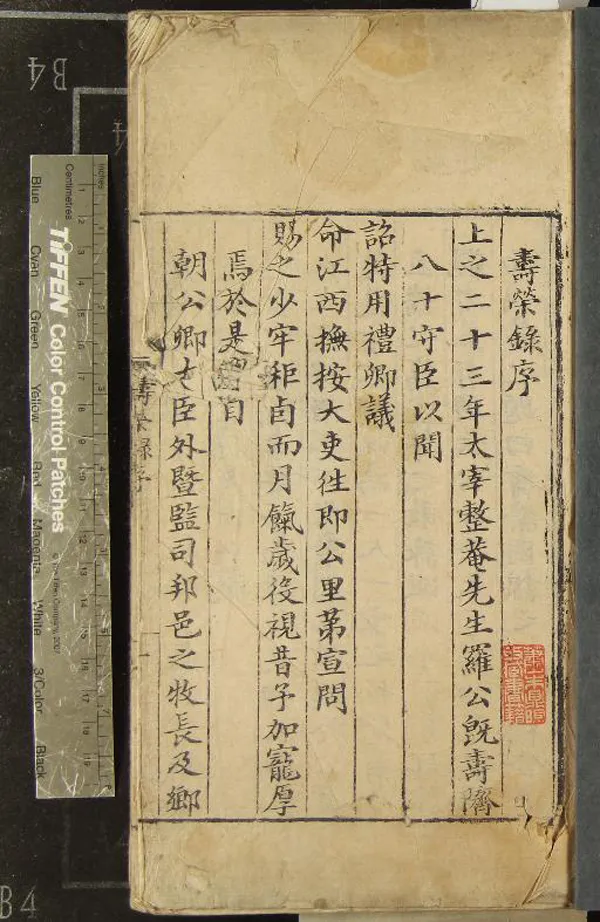 壽榮錄序
上之二十三年太宰整菴先生羅公旣壽隮
八十守臣以聞
詔特用禮卿議
命江西撫按大吏徃即公里第宣問
賜之少牢秬卣而月餼歲役視昔予加寵厚
焉於是自
朝公卿士臣外暨監司邦邑之牧長及鄉
壽榮錄序
B4
4
B4
inches
Centimetres
TIFFEN Color Control Patches
Blue
Cyan
Green
Yellow
Red
Magenta
White
3/Color
Black